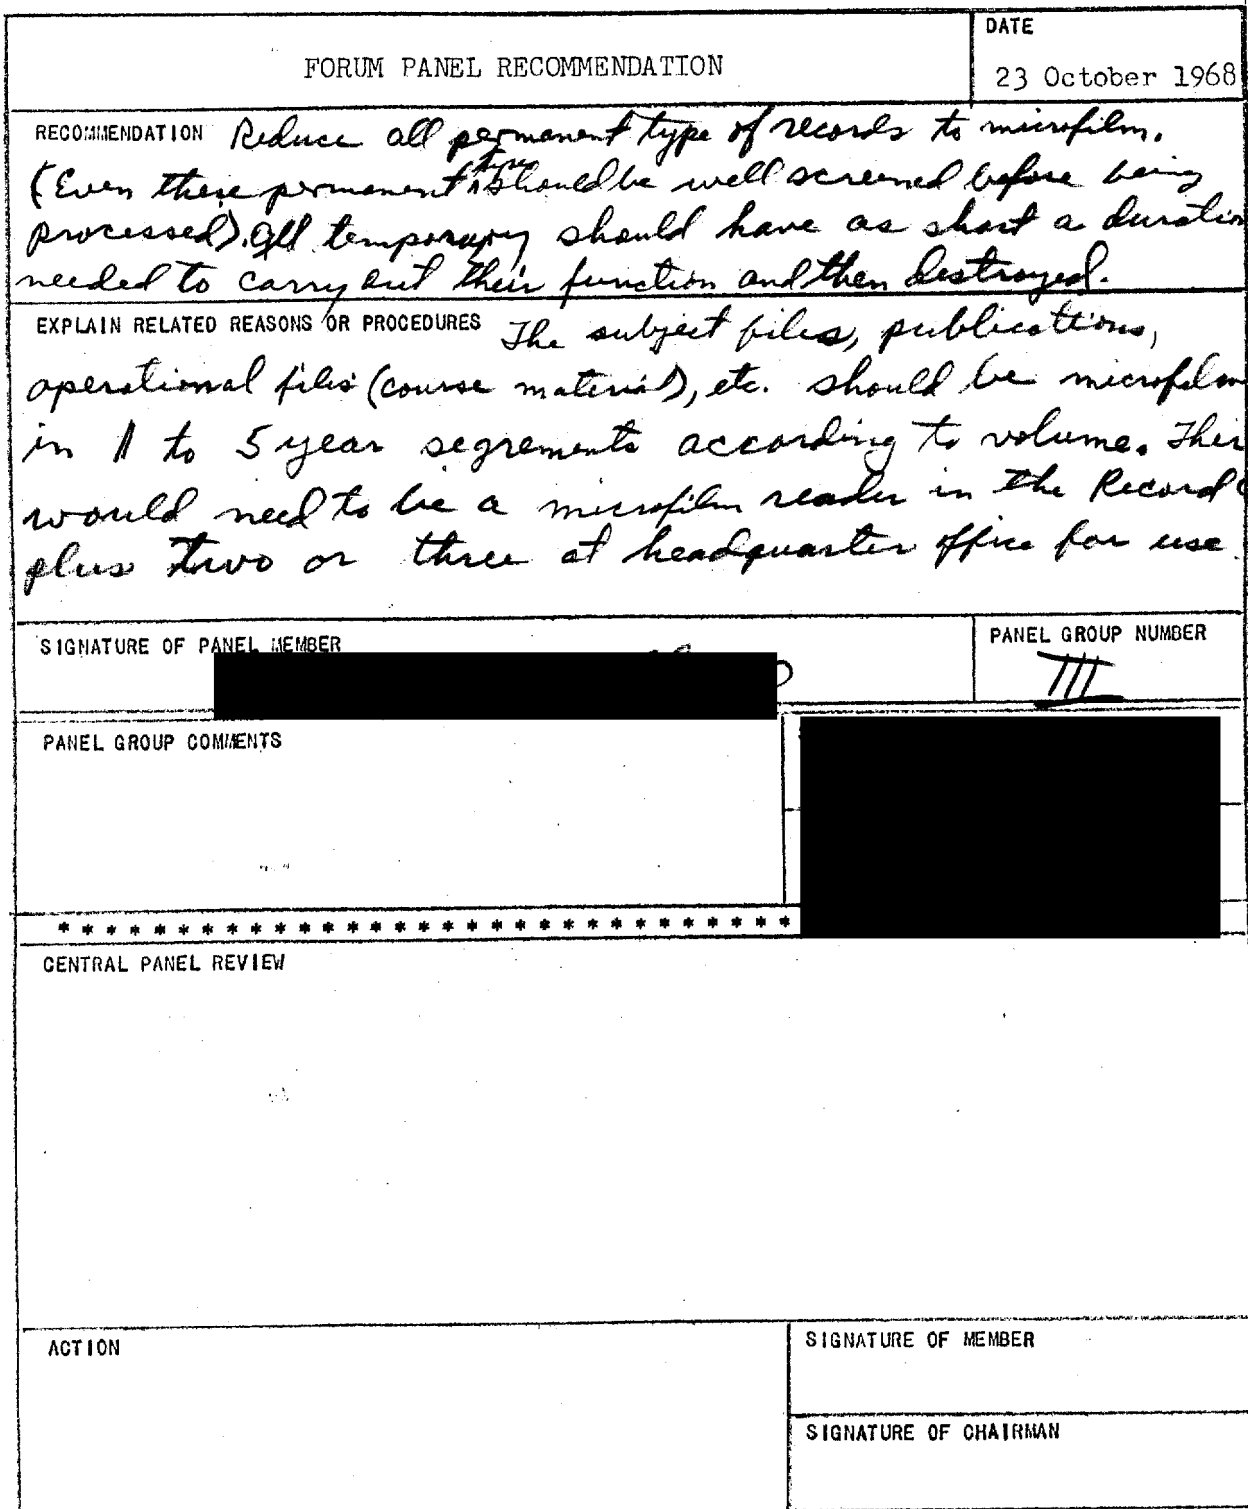 DATE
FORUM PANEL RECOMMENDATION
23 October 1968
RECOMMENDATION Reduce all permanent type of records to microfilm.
(Even these permanent type should be well screened before being
processed). All temporary should have as short a duration
needed to carry out their function and then destroyed.
EXPLAIN RELATED REASONS OR PROCEDURES The subject files, publications,
operational files (course material), etc. should be microfilm
in 1 to 5 year segrements according to volume. Ther
would need to be a microfilm reader in the Record
plus two or three at headquarter office for use
SIGNATURE OF PANEL MEMBER
PANEL GROUP NUMBER
III
PANEL GROUP COMMENTS
* * * * * * * * * * * * * * * * * * * * * * * * * * * * * * *
CENTRAL PANEL REVIEW
ACTION
SIGNATURE OF MEMBER
SIGNATURE OF CHAIRMAN